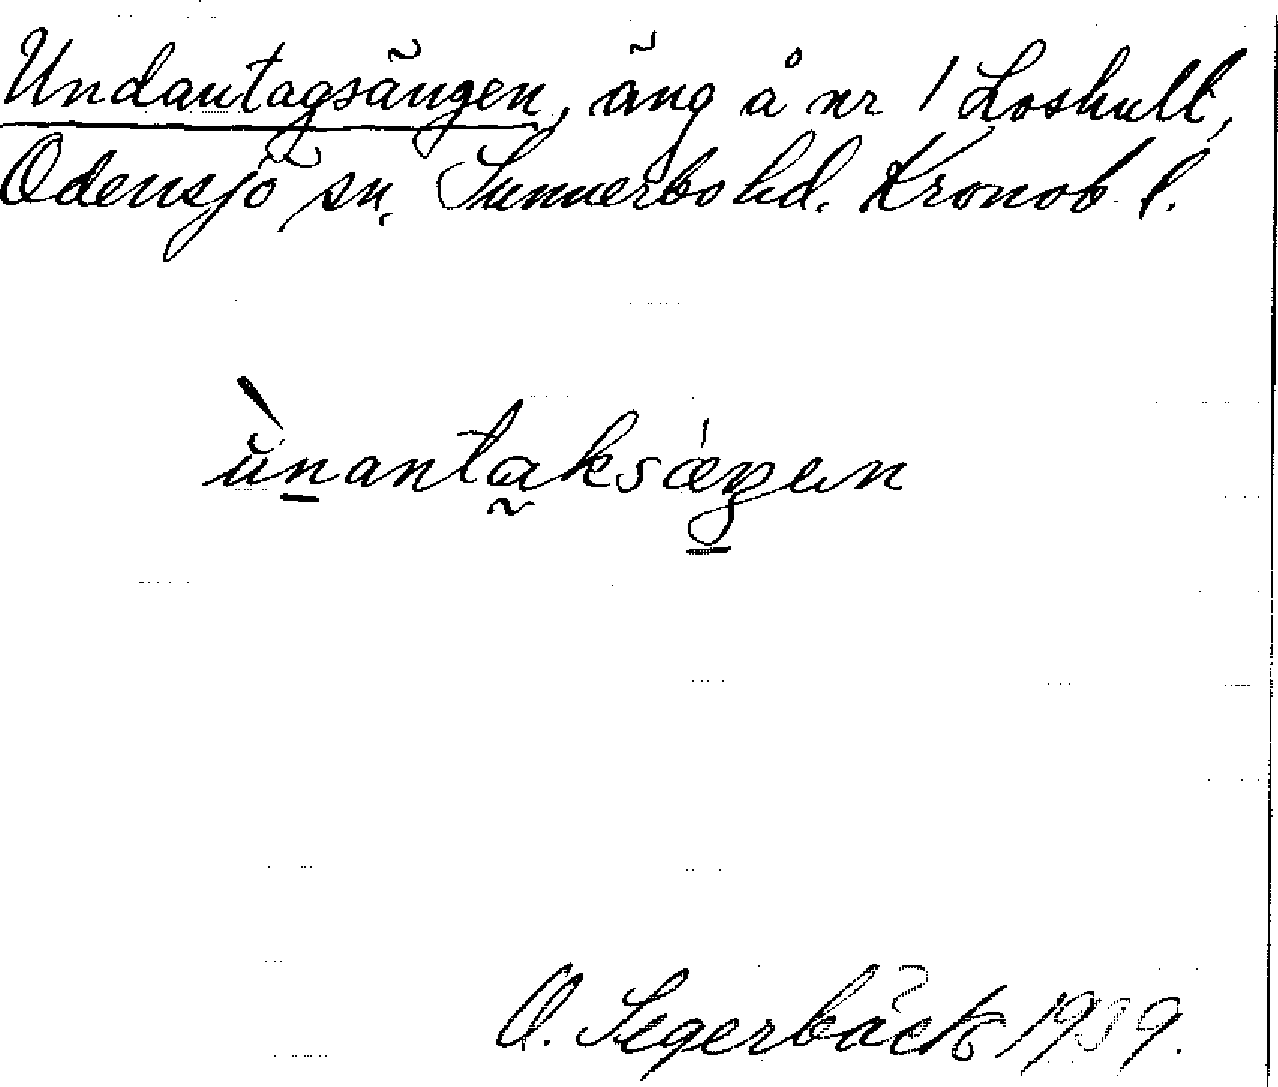 Undantagsängen, äng å nr 1 Loshult,
Odensjö sn. Sunnerbo hd. Kronob l.
ùnantaksæŋen
O. Segerbäck 1939.